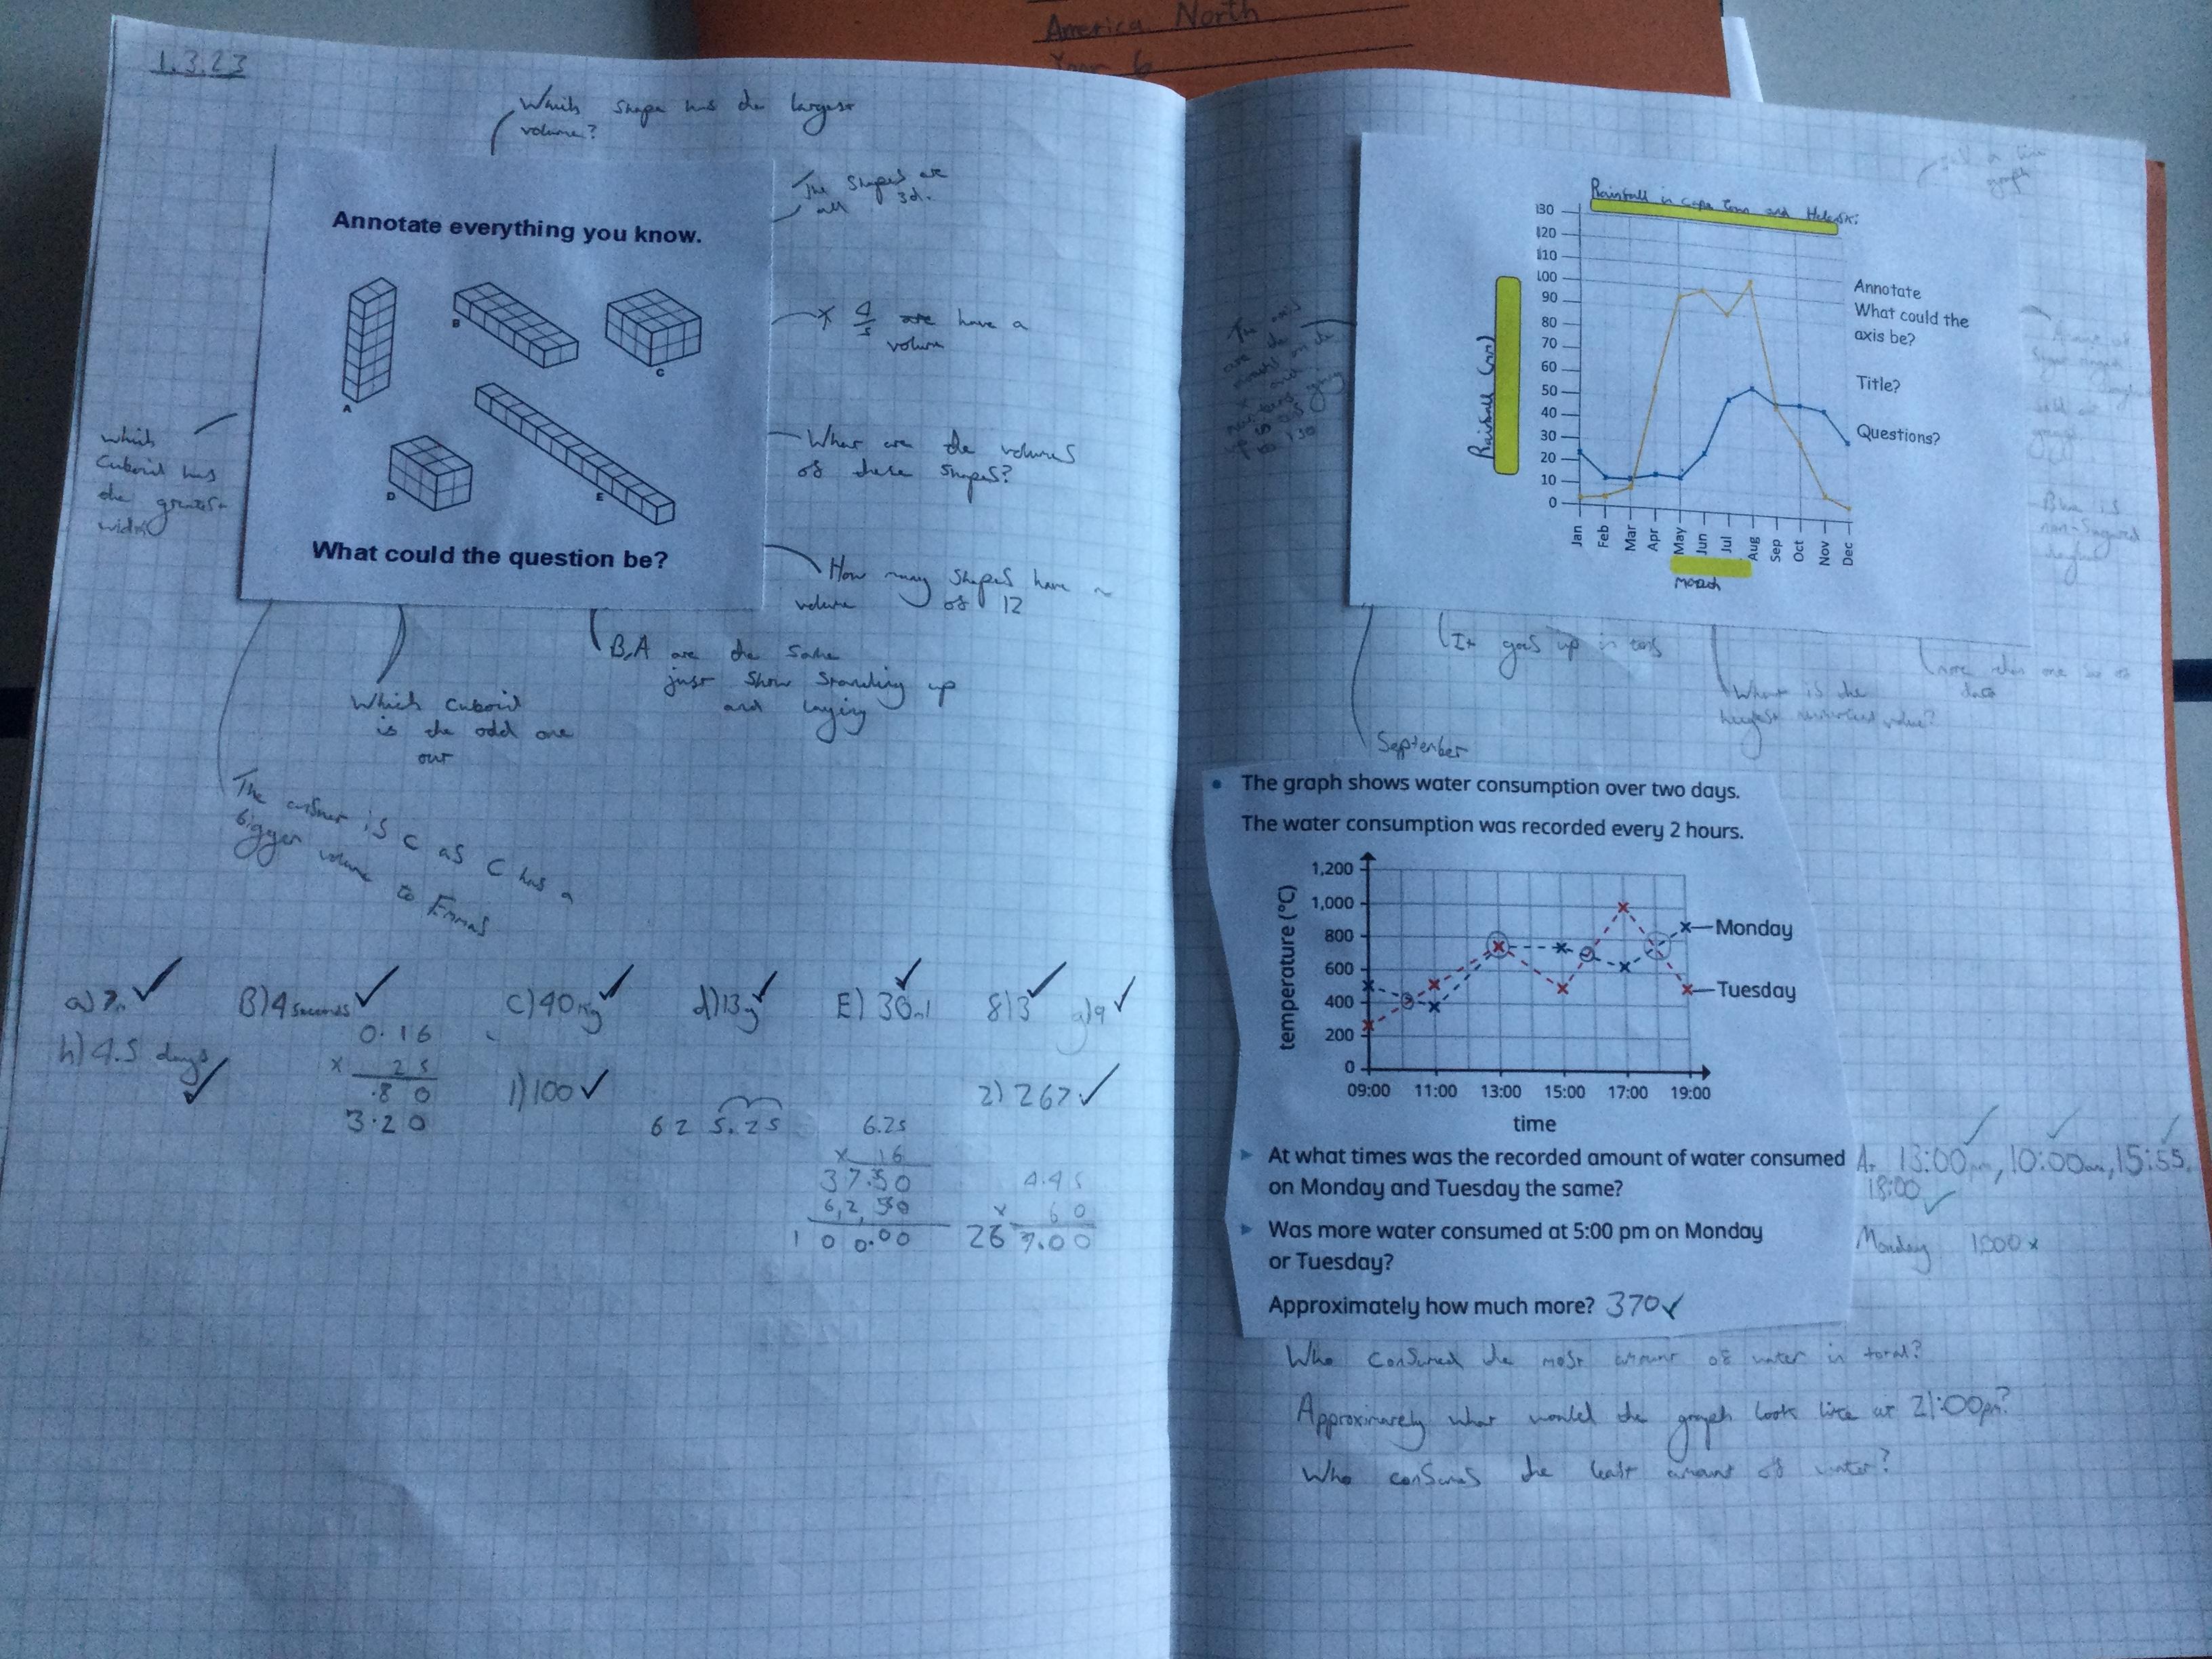 America North
Year 6
1.3.23
Which shape has the largest
volume?
The shapes are
all 3d.
Annotate everything you know.
A
B
C
D
E
What could the question be?
have a
volume
What are the volumes
of these shapes?
How many shapes have a
volume of 12
which
Cuboid has
the greatest
width
B,A are the same
just show standing up
and laying
Which cuboid
is the odd one
out
The answer is C as C has a
bigger volume to Emmas
B) 4 seconds
C) 40kg
d) 13g
E) 30ml
8) 3
g) 9
h) 4.5 days
0.16
x 25
.80
3.20
1) 100
2) 267
62 5.25
6.25
x 16
37.50
62.50
100.00
4.45
x 60
267.00
Rainfall in Cape Town and Helsinki
Rainfall (mm)
130
120
110
100
90
80
70
60
50
40
30
20
10
0
Jan
Feb
Mar
Apr
May
Jun
Jul
Aug
Sep
Oct
Nov
Dec
Annotate
What could the
axis be?
Title?
Questions?
graph
The axis
are the
months on the
x and
It goes up in tens
What is the
value?
more than one set of
data
September
The graph shows water consumption over two days.
The water consumption was recorded every 2 hours.
temperature (°C)
1,200
1,000
800
600
400
200
0
09:00 11:00 13:00 15:00 17:00 19:00
time
Monday
Tuesday
At what times was the recorded amount of water consumed
on Monday and Tuesday the same?
At 13:00pm, 10:00am, 15:55,
18:00
Was more water consumed at 5:00 pm on Monday
or Tuesday?
Monday 1000 x
Approximately how much more? 370
Who consumed the most amount of water in total?
Approximately what would the graph look like at 21:00pm?
Who consumes the least amount of water?